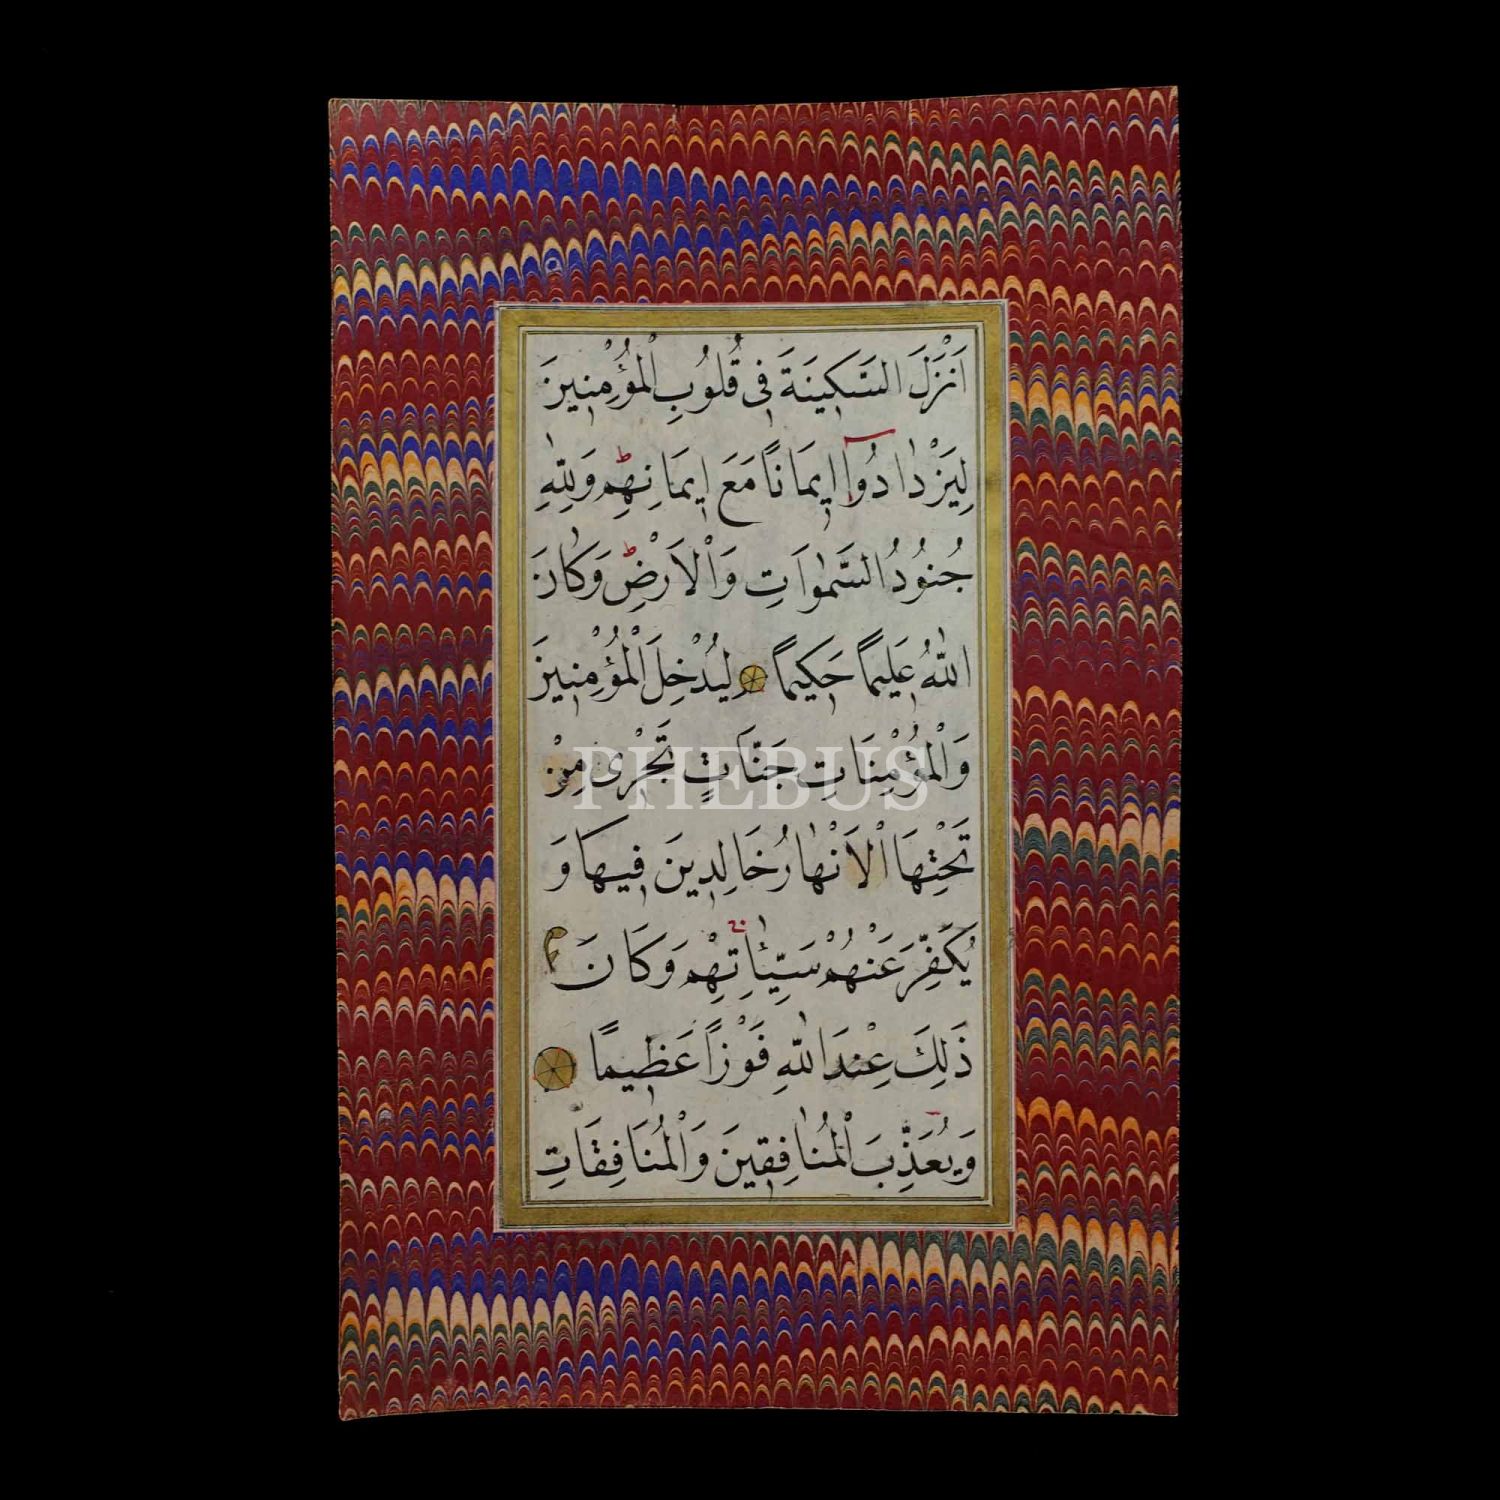 اَنْزَلَ السَّكٖينَةَ فٖى قُلُوبِ الْمُؤْمِنٖينَ
لِيَزْدَادُوا اٖيمَانًا مَعَ اٖيمَانِهِمْ ط وَلِلّٰهِ
جُنُودُ السَّمٰوَاتِ وَالْاَرْضِ ط وَكَانَ
اللّٰهُ عَلٖيمًا حَكٖيمًا لِيُدْخِلَ الْمُؤْمِنٖينَ
وَالْمُؤْمِنَاتِ جَنَّاتٍ تَجْرٖى مِنْ
PHEBUS
تَحْتِهَا الْاَنْهَارُ خَالِدٖينَ فٖيهَا وَ
يُكَفِّرَ عَنْهُمْ سَيِّـَٔاتِهِمْ وَكَانَ
ذٰلِكَ عِنْدَ اللّٰهِ فَوْزًا عَظٖيمًا
وَيُعَذِّبَ الْمُنَافِقٖينَ وَالْمُنَافِقَاتِ